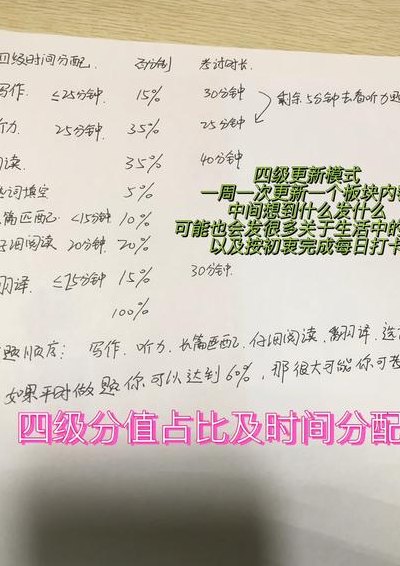 四级时间分配. 百分制 考试时长.
写作. ≤25分钟. 15% 30分钟
剩余5分钟去看听力题
听力. 25分钟. 35% 25分钟
阅读. 35% 40分钟
选词填空 5%
长篇匹配 <15分钟 10%
仔细阅读 20分钟 20%
翻译. ≤25分钟 15% 30分钟.
100%
做题顺序: 写作、听力、长篇匹配、仔细阅读、翻译、选
如果平时做题你可以达到60%, 那很大可能你可
四级更新模式
一周一次更新一个板块内
中间想到什么发什么
可能也会发很多关于生活中的
以及按初衷完成每日打卡
四级分值占比及时间分配